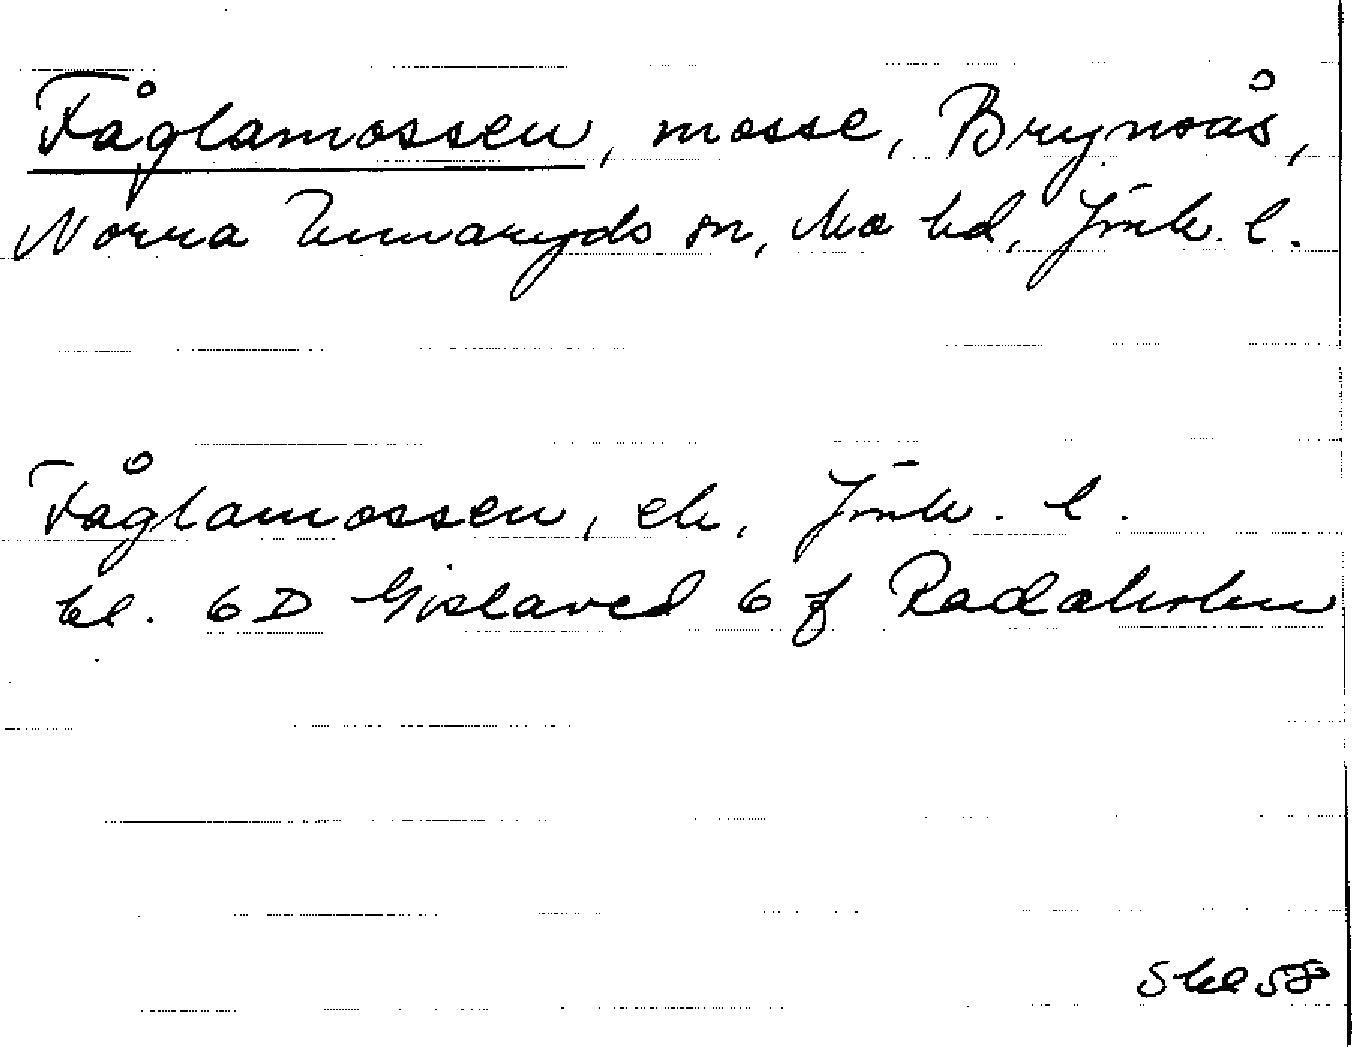 Fåglamossen, mosse, Brynoås,
Norra Unnaryds sn, Mo hd, Jönk. l.
Fåglamossen, ek, Jönk. l.
bl. 6 D Gislaved 6 f Radaholm
Skl 58